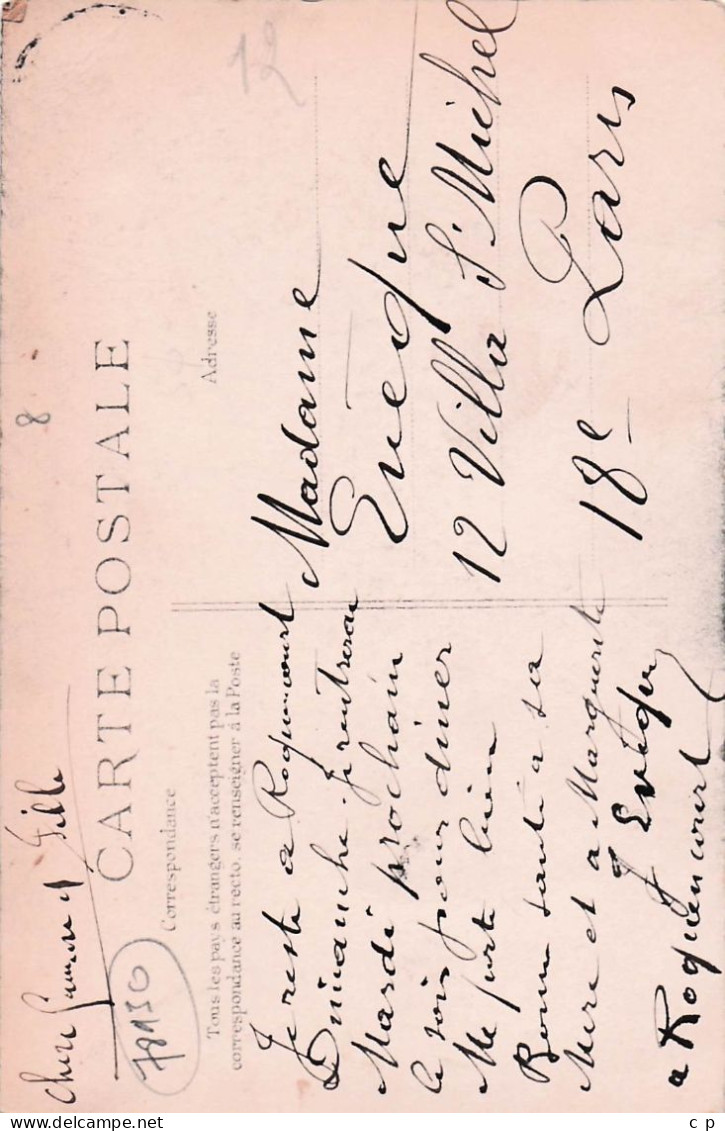 Chere et fille
CARTE POSTALE
Correspondance
Tous les pays étrangers n'acceptent pas la
correspondance au recto, se renseigner à la Poste
Je reste a Roquencourt
Dimanche. Je rentrerai
Mardi prochain
le soir pour diner
Me porte bien
Bonne santé a sa
Mere et a Marguerite
J Evêque
a Roquencourt
78150
8
12
Adresse
Madame
Evêque
12 Villa St Michel
18e Paris
Delcampe.net
c_p